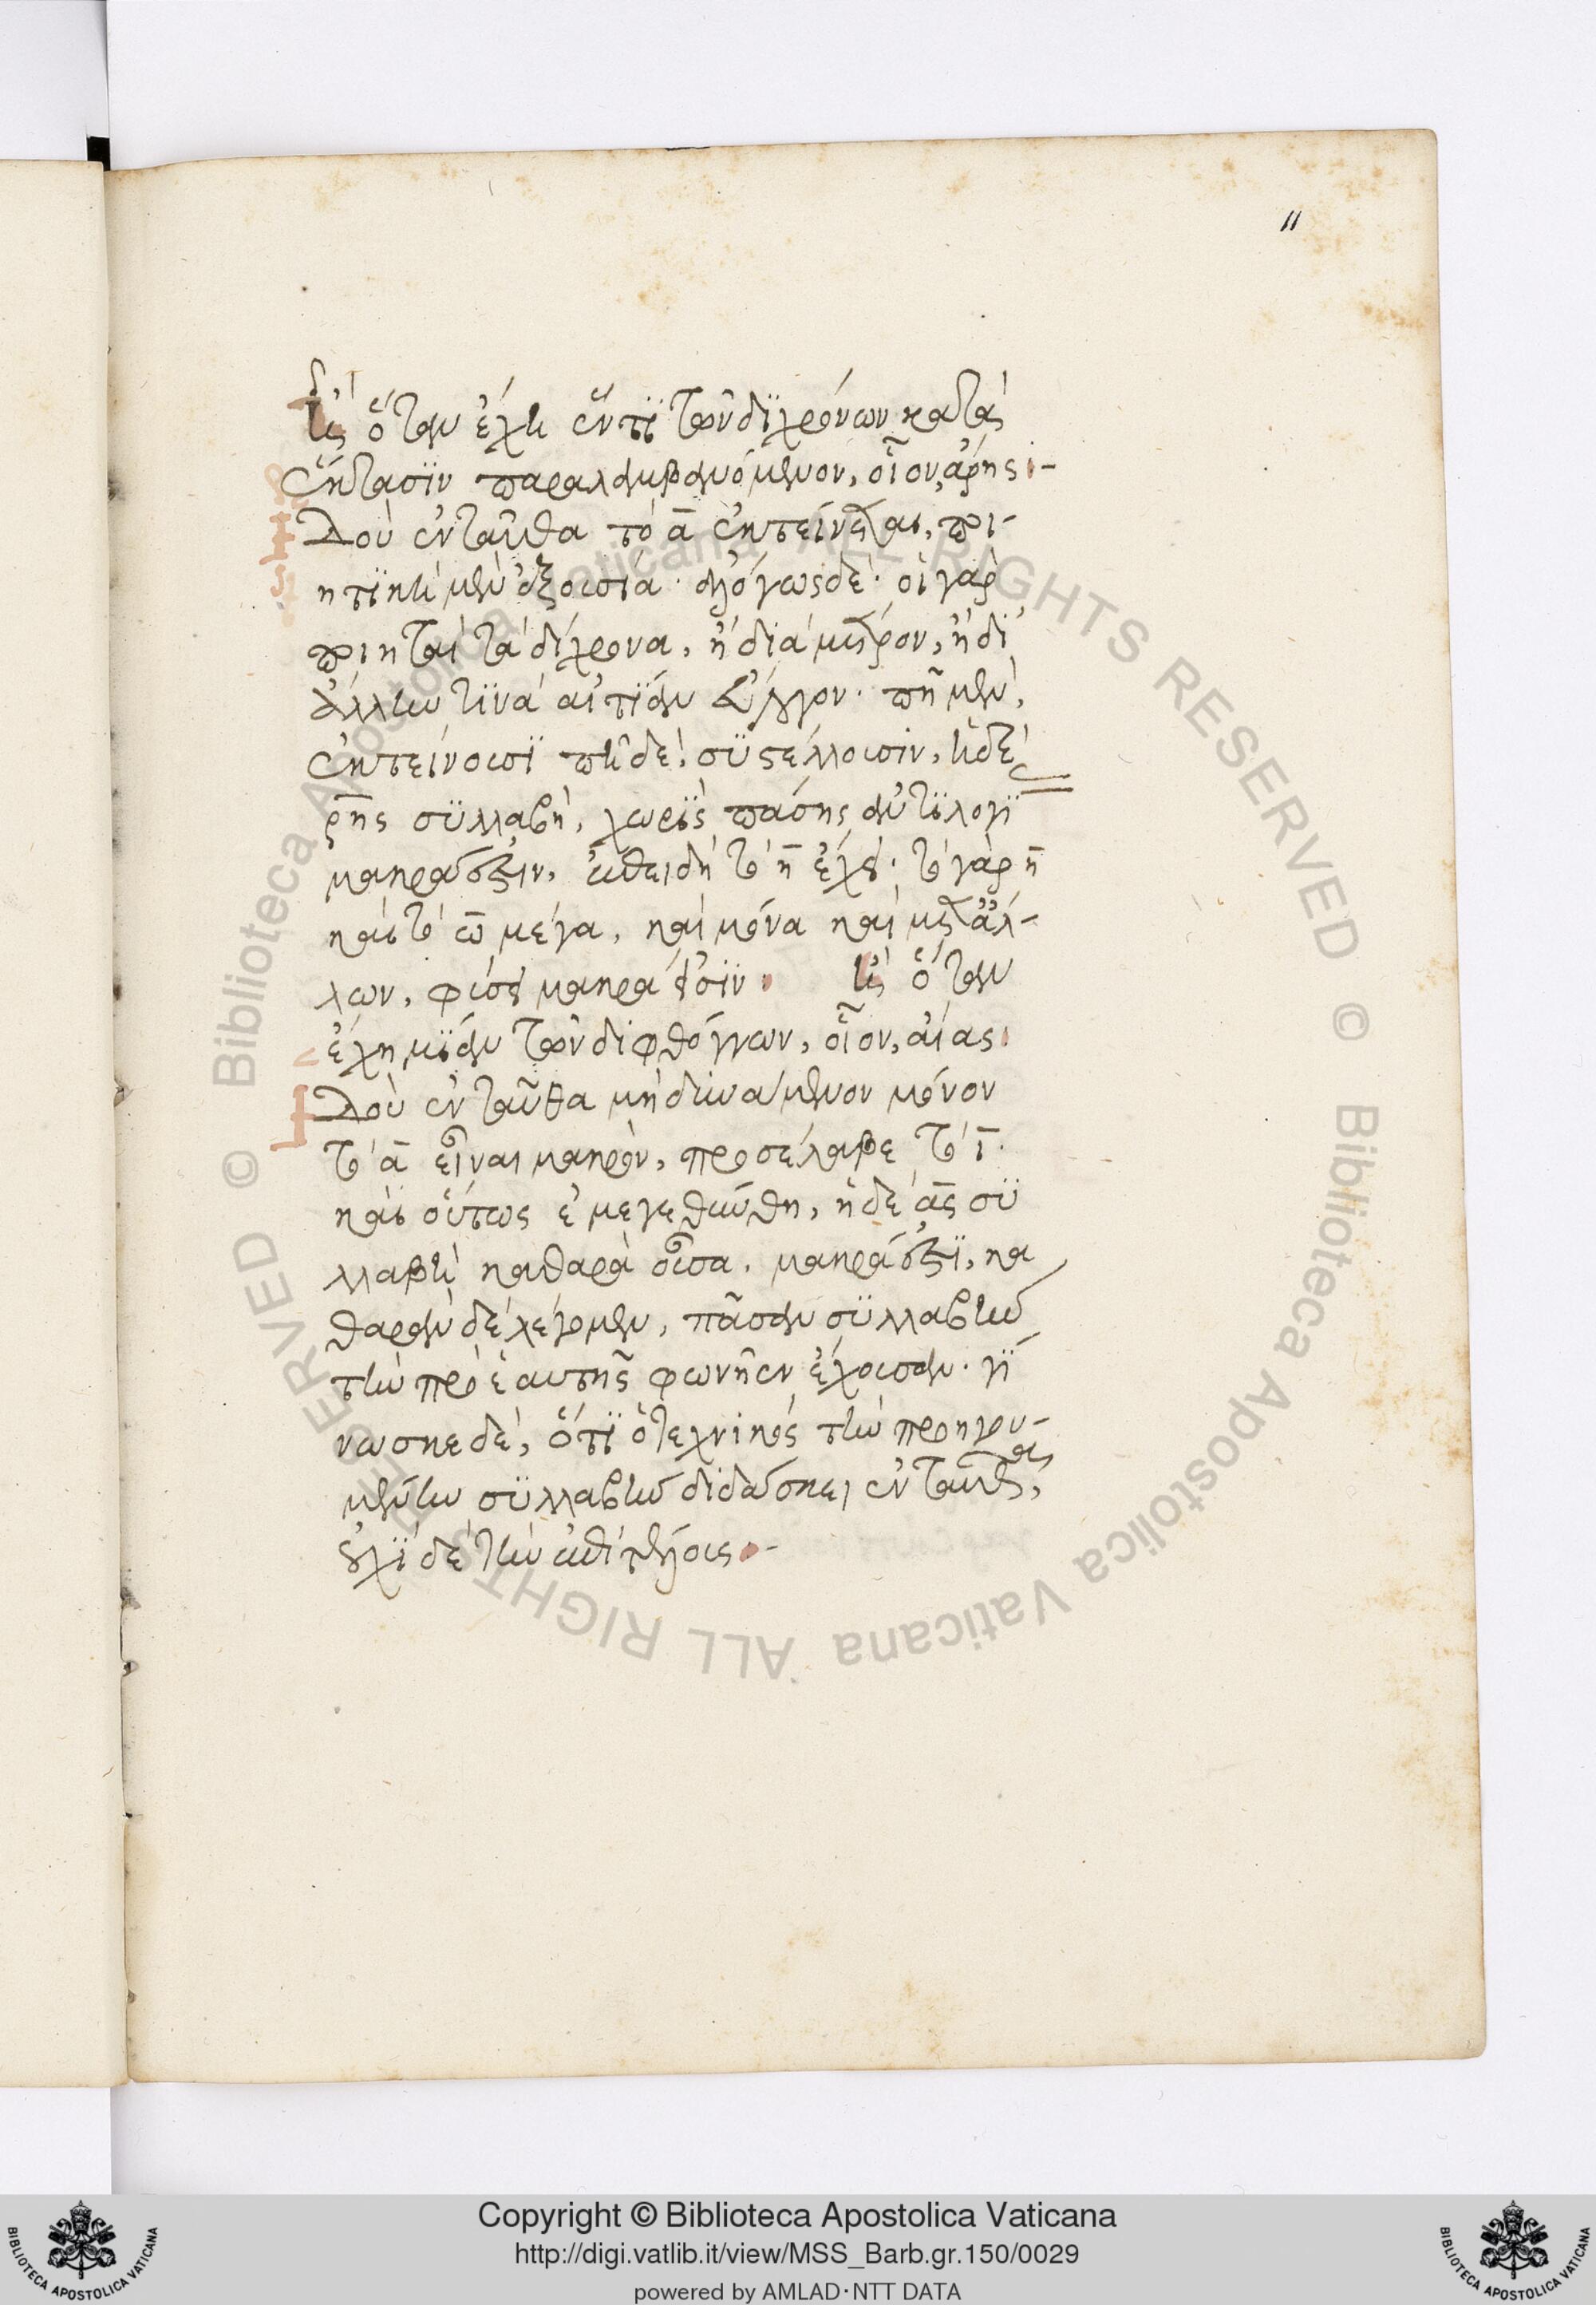 11
ἢ ὅταν ἔχη ἕν τι τῶν διχρόνων κατὰ
ἔκτασιν παραλαμβανόμενον, οἷον, ἄρης·-
Δοὺ ἐνταῦθα τὸ ᾱ ἐκτείνεται, ποι-
ητικῆ μὲν ἐξουσία· ἀλόγως δέ· οἱ γὰρ
ποιηταὶ τὰ δίχρονα, ἢ διὰ μέτρον, ἢ δι'
ἄλλην τινὰ αἰτίαν εὔλογον· πῆ μὲν,
ἐκτείνουσι πῆ δὲ, συστέλλουσιν, ἡ δὲ
ρης συλλαβὴ, χωρὶς πάσης ἀντιλογί
μακρά ἐστιν, ἐπειδὴ τὸ η̄ ἔχει· τὸ γὰρ η̄
καὶ τὸ ω̄ μέγα, καὶ μόνα καὶ μετ' ἄλ-
λων, φύσει μακρά εἰσιν· ἢ ὅταν
ἔχη μίαν τῶν διφθόγγων, οἷον, αἴας·
Δοὺ ἐνταῦθα μὴ δυνάμενον μόνον
τὸ ᾱ εἶναι μακρὸν, προσέλαβε τὸ ῑ·
καὶ οὕτως ἐμεγεθύνθη, ἡ δὲ ᾱς συ
λλαβὴ καθαρὰ οὖσα, μακρά ἐστι, κα
θαρὰν δὲ λέγομεν, πᾶσαν συλλαβὴν
τὴν πρὸ ἑαυτῆς φωνῆεν ἔχουσαν· γί
νωσκε δὲ, ὅτι ὁ τεχνικὸς τὴν προηγου-
μένην συλλαβὴν διδάσκει ἐνταῦθα,
οὐχὶ δὲ τὴν ἐπὶ τέλους·-
Copyright © Biblioteca Apostolica Vaticana
http://digi.vatlib.it/view/MSS_Barb.gr.150/0029
powered by AMLAD·NTT DATA
BIBLIOTECA APOSTOLICA VATICANA
BIBLIOTECA APOSTOLICA VATICANA
© Biblioteca Apostolica Vaticana ALL RIGHTS RESERVED © Biblioteca Apostolica Vaticana ALL RIGHTS RESERVED